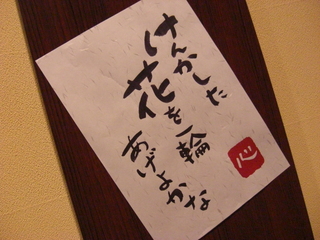 けんかした
花を一輪
あげよかな
心